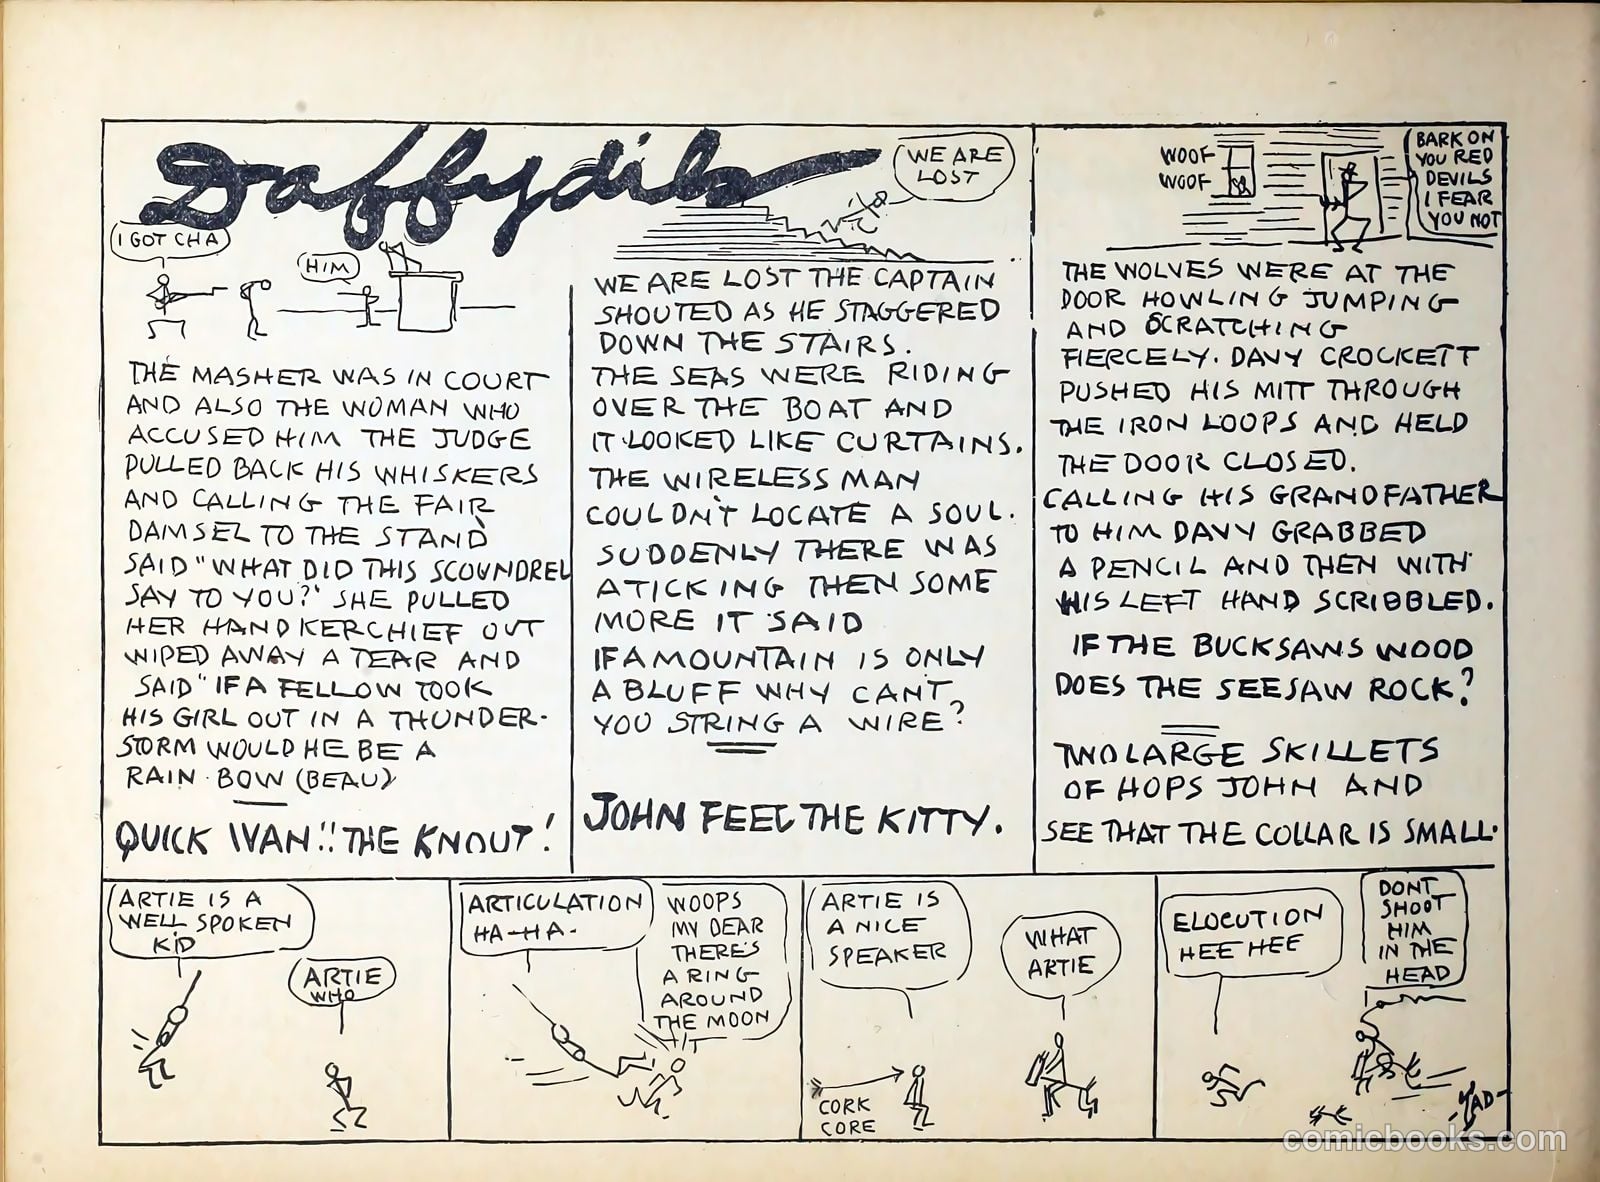 Daffydils
I GOT CHA
HIM
THE MASHER WAS IN COURT
AND ALSO THE WOMAN WHO
ACCUSED HIM THE JUDGE
PULLED BACK HIS WHISKERS
AND CALLING THE FAIR
DAMSEL TO THE STAND
SAID "WHAT DID THIS SCOUNDREL
SAY TO YOU?" SHE PULLED
HER HANDKERCHIEF OUT
WIPED AWAY A TEAR AND
SAID "IF A FELLOW TOOK
HIS GIRL OUT IN A THUNDER-
STORM WOULD HE BE A
RAIN-BOW (BEAU)
QUICK IVAN!! THE KNOUT!
WE ARE
LOST
WE ARE LOST THE CAPTAIN
SHOUTED AS HE STAGGERED
DOWN THE STAIRS.
THE SEAS WERE RIDING
OVER THE BOAT AND
IT LOOKED LIKE CURTAINS.
THE WIRELESS MAN
COULDN'T LOCATE A SOUL.
SUDDENLY THERE WAS
A TICKING THEN SOME
MORE IT SAID
IF A MOUNTAIN IS ONLY
A BLUFF WHY CANT
YOU STRING A WIRE?
JOHN FEED THE KITTY.
WOOF
WOOF
BARK ON
YOU RED
DEVILS
I FEAR
YOU NOT
THE WOLVES WERE AT THE
DOOR HOWLING JUMPING
AND SCRATCHING
FIERCELY. DAVY CROCKETT
PUSHED HIS MITT THROUGH
THE IRON LOOPS AND HELD
THE DOOR CLOSED.
CALLING HIS GRANDFATHER
TO HIM DAVY GRABBED
A PENCIL AND THEN WITH
HIS LEFT HAND SCRIBBLED.
IF THE BUCKSAWS WOOD
DOES THE SEESAW ROCK?
TWO LARGE SKILLETS
OF HOPS JOHN AND
SEE THAT THE COLLAR IS SMALL.
ARTIE IS A
WELL SPOKEN
KID
ARTIE
WHO
ARTICULATION
HA-HA-
WOOPS
MY DEAR
THERE'S
A RING
AROUND
THE MOON
ARTIE IS
A NICE
SPEAKER
WHAT
ARTIE
CORK
CORE
ELOCUTION
HEE HEE
DONT
SHOOT
HIM
IN THE
HEAD
-TAD-
comicbooks.com